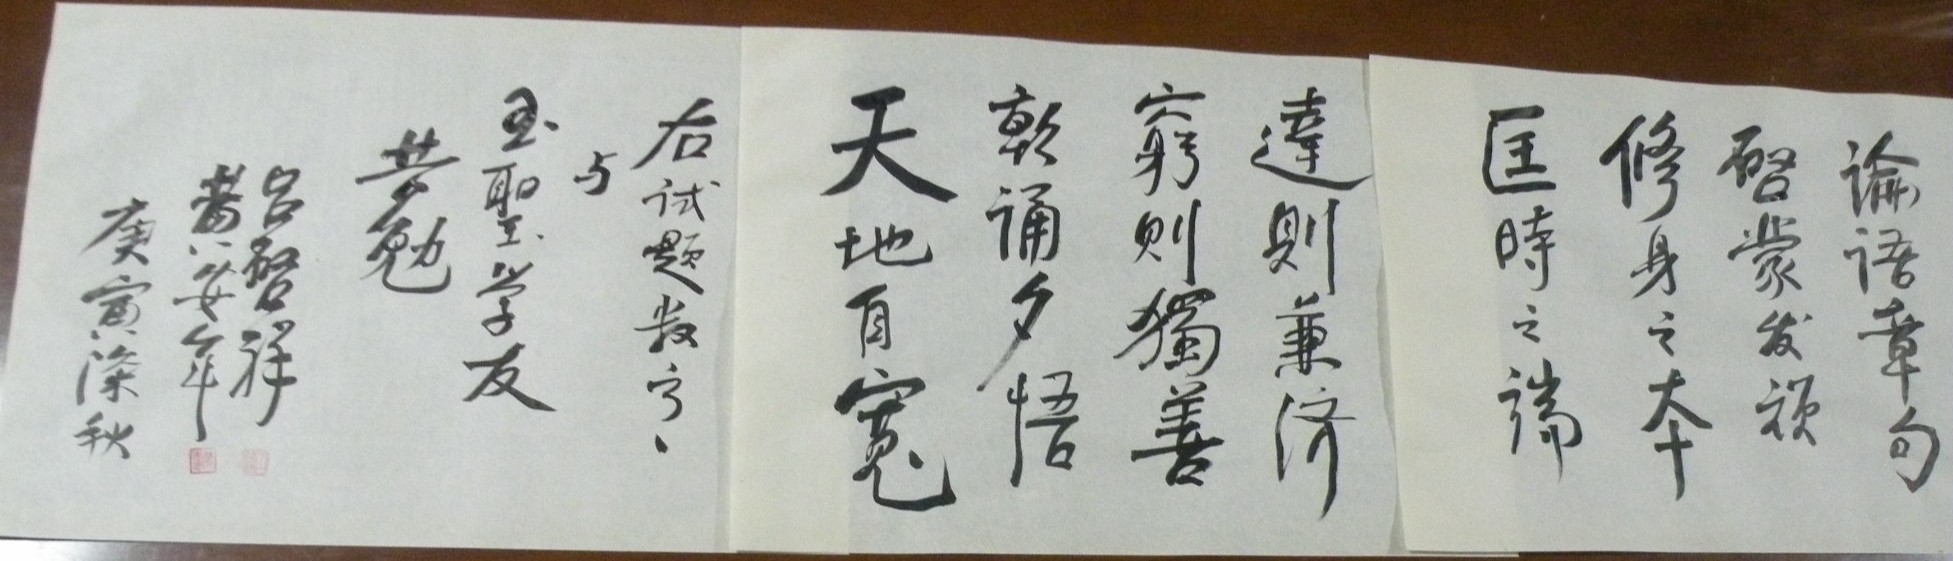 論語章句
啓蒙发颏
修身之本
匡時之端
達則兼济
窮則獨善
朝誦夕悟
天地自寬
右试题数字、
与
玉聖学友
共勉
吕啓祥
黄安年
庚寅深秋